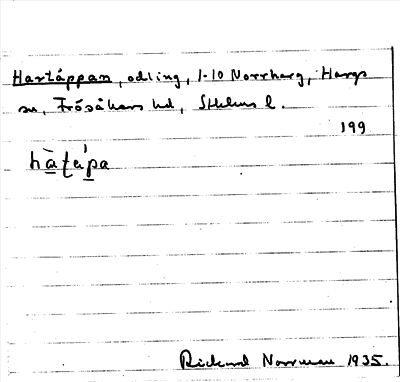 Hartäppan, odling, 1-10 Norrharg, Hargs
sn, Frösåkers hd, Sthlms l.
199
hàta̍pa
Rickard Norrman 1935.